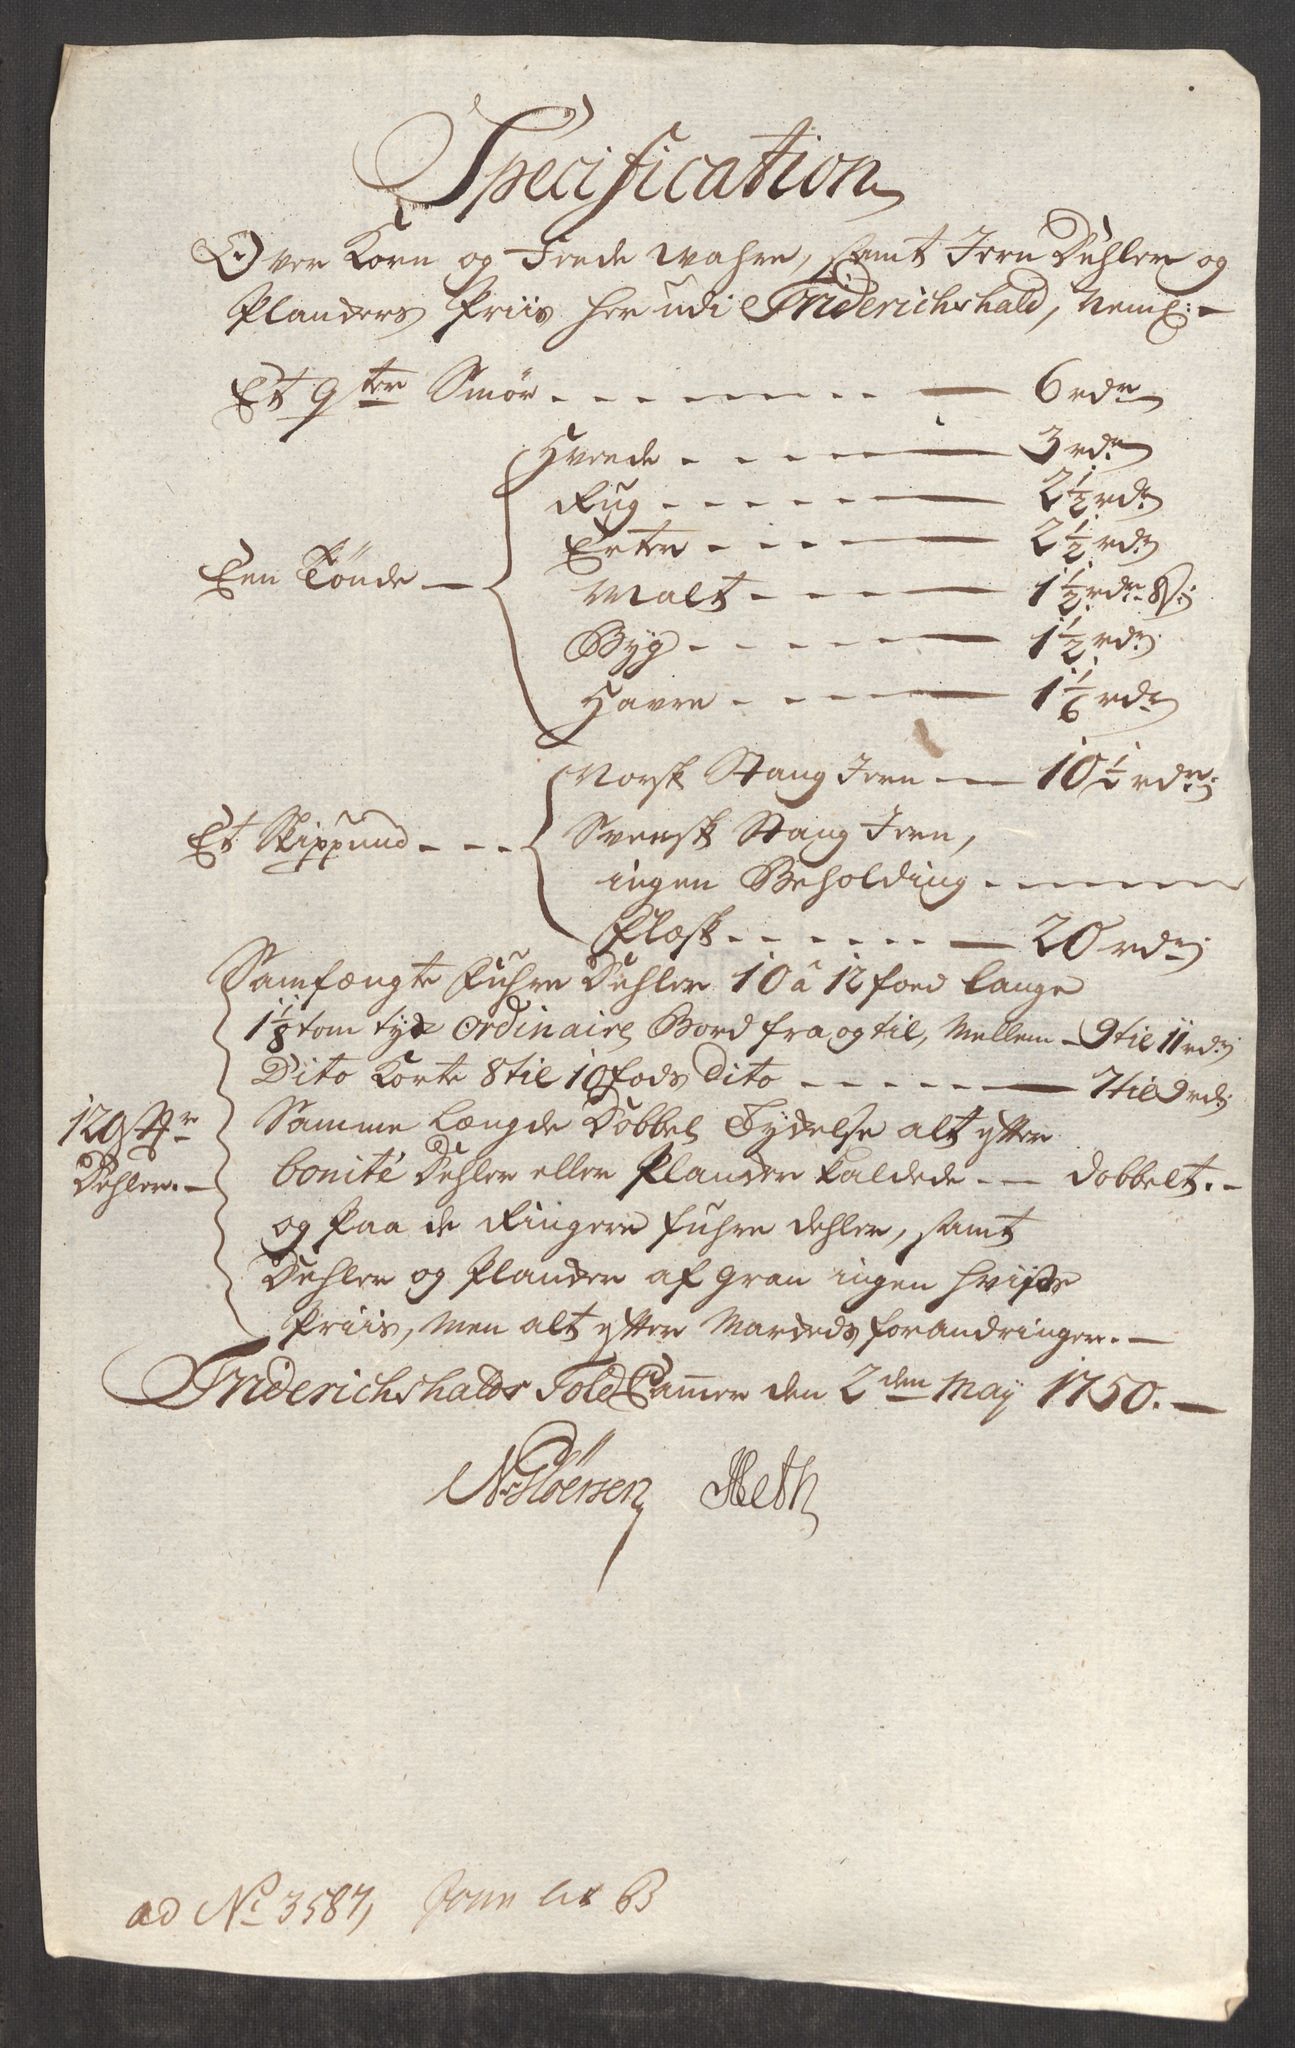 Specification
Over Korn og Feede Wahre, samt Jern Dehler og
Planckers Priis her udi Friderichshald, Neml:
Et 9ter Smør - - - 6 rdr
Hvede - - - 3 rdr
Rug - - - 2 1/2 rdr
Erter - - - 2 1/2 rdr
Een Tønde
Malt - - - 1 1/2 rdr 8 s:
Byg - - - 1 1/2 rdr
Havre - - - 1 1/6 rdr
Norsk Stang Jern - 10 1/2 rdr:
Et Skippund - - -
Svensk Stang Jern,
ingen Beholding - - -
Flesk - - - 20 rdr:
Samfængte Fuhre Dehler 10 a 12 foed lange
1 1/8 tom tyck ordinaire Bord fra og til, Mellem - 9 til 11 rdr
Dito Korte 8 til 10 fods dito - - - 7 til 9 rdr
120 St:r
Dehler. -
Samme Længde Dobbel Tydelse alt efter
bonité Dehler eller Plancker kaldede - - dobbelt. -
og paa de Ringere fuhre dehler, samt
Dehler og Plancker af gran ingen hvisse
Priis, men alt efter Marckeds forandringer. -
Friderichshalds Told Cammer den 2den May 1750. -
N: Sløersen Meth
ad No 3587, Jour lit B